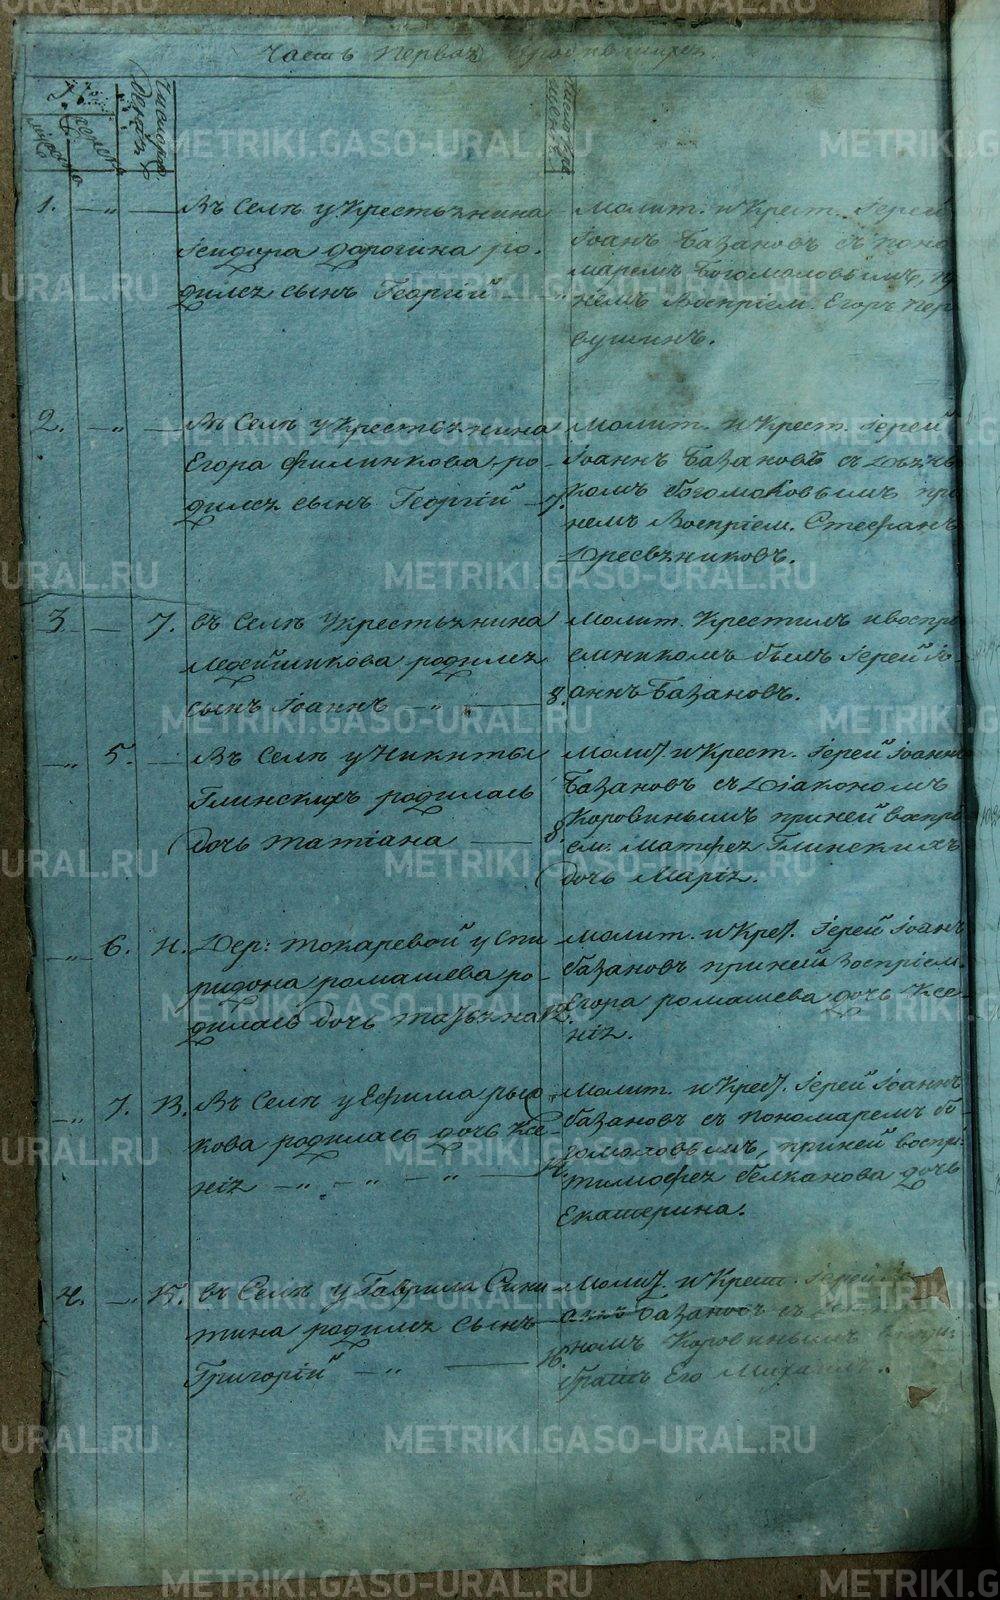 Часть первая
1. — „ — Въ Селѣ у крестьянина
Ісидора Дорогина ро-
дился сынъ Георгій
Молит. и Крест. Іерей
Іоаннъ Базановъ съ поно
маремъ Богомоловымъ, при
немъ Воспріем. Егоръ Пер
вушинъ.
2. — „ — Въ Селѣ у Крестьянина
Егора Филинкова, ро-
дился сынъ Георгій — 7.
Молит. и Крест. Іерей
Іоаннъ Базановъ съ Дьяч
комъ Богомоловымъ при
немъ Воспріем. Стефанъ
Дресвянниковъ.
3. — 7. въ Селѣ У крестьянина
родился
сынъ Іоаннъ — „ — 8.
Молит. Крестилъ и воспри
емникомъ былъ Іерей Іо-
аннъ Базановъ.
— „ 5. — Въ Селѣ у Никиты
Глинскихъ родилась
дочь Татіана — 8.
Молит. и Крест. Іерей Іоаннъ
Базановъ съ Діакономъ
Коровинымъ при ней воспрі
ем. Матфея Глинскихъ
дочь Марія.
— „ 6. 11. Дер: Токаревой у Спи
ридона Ромашева ро-
дилась дочь Татьяна 12.
Молит. и Крест. Іерей Іоаннъ
Базановъ при ней Воспріем.
Егора Ромашева дочь Ксе-
нія.
— „ 7. 13. Въ Селѣ у Ефима
родилась дочь Ксе-
нія — „ — „ — „ — 14.
Молит. и Крест. Іерей Іоаннъ
Базановъ съ пономаремъ Бо-
гомоловымъ, при ней воспрі:
Тимофея Белканова дочь
Екатерина.
4. — „ 15. въ Селѣ у Гаврила Сини
тина родился сынъ
Григорій — „ — 16.
Молит. и Крест. Іерей
Базановъ съ
Коровинымъ
братъ Его Михаилъ.
METRIKI.GASO-URAL.RU